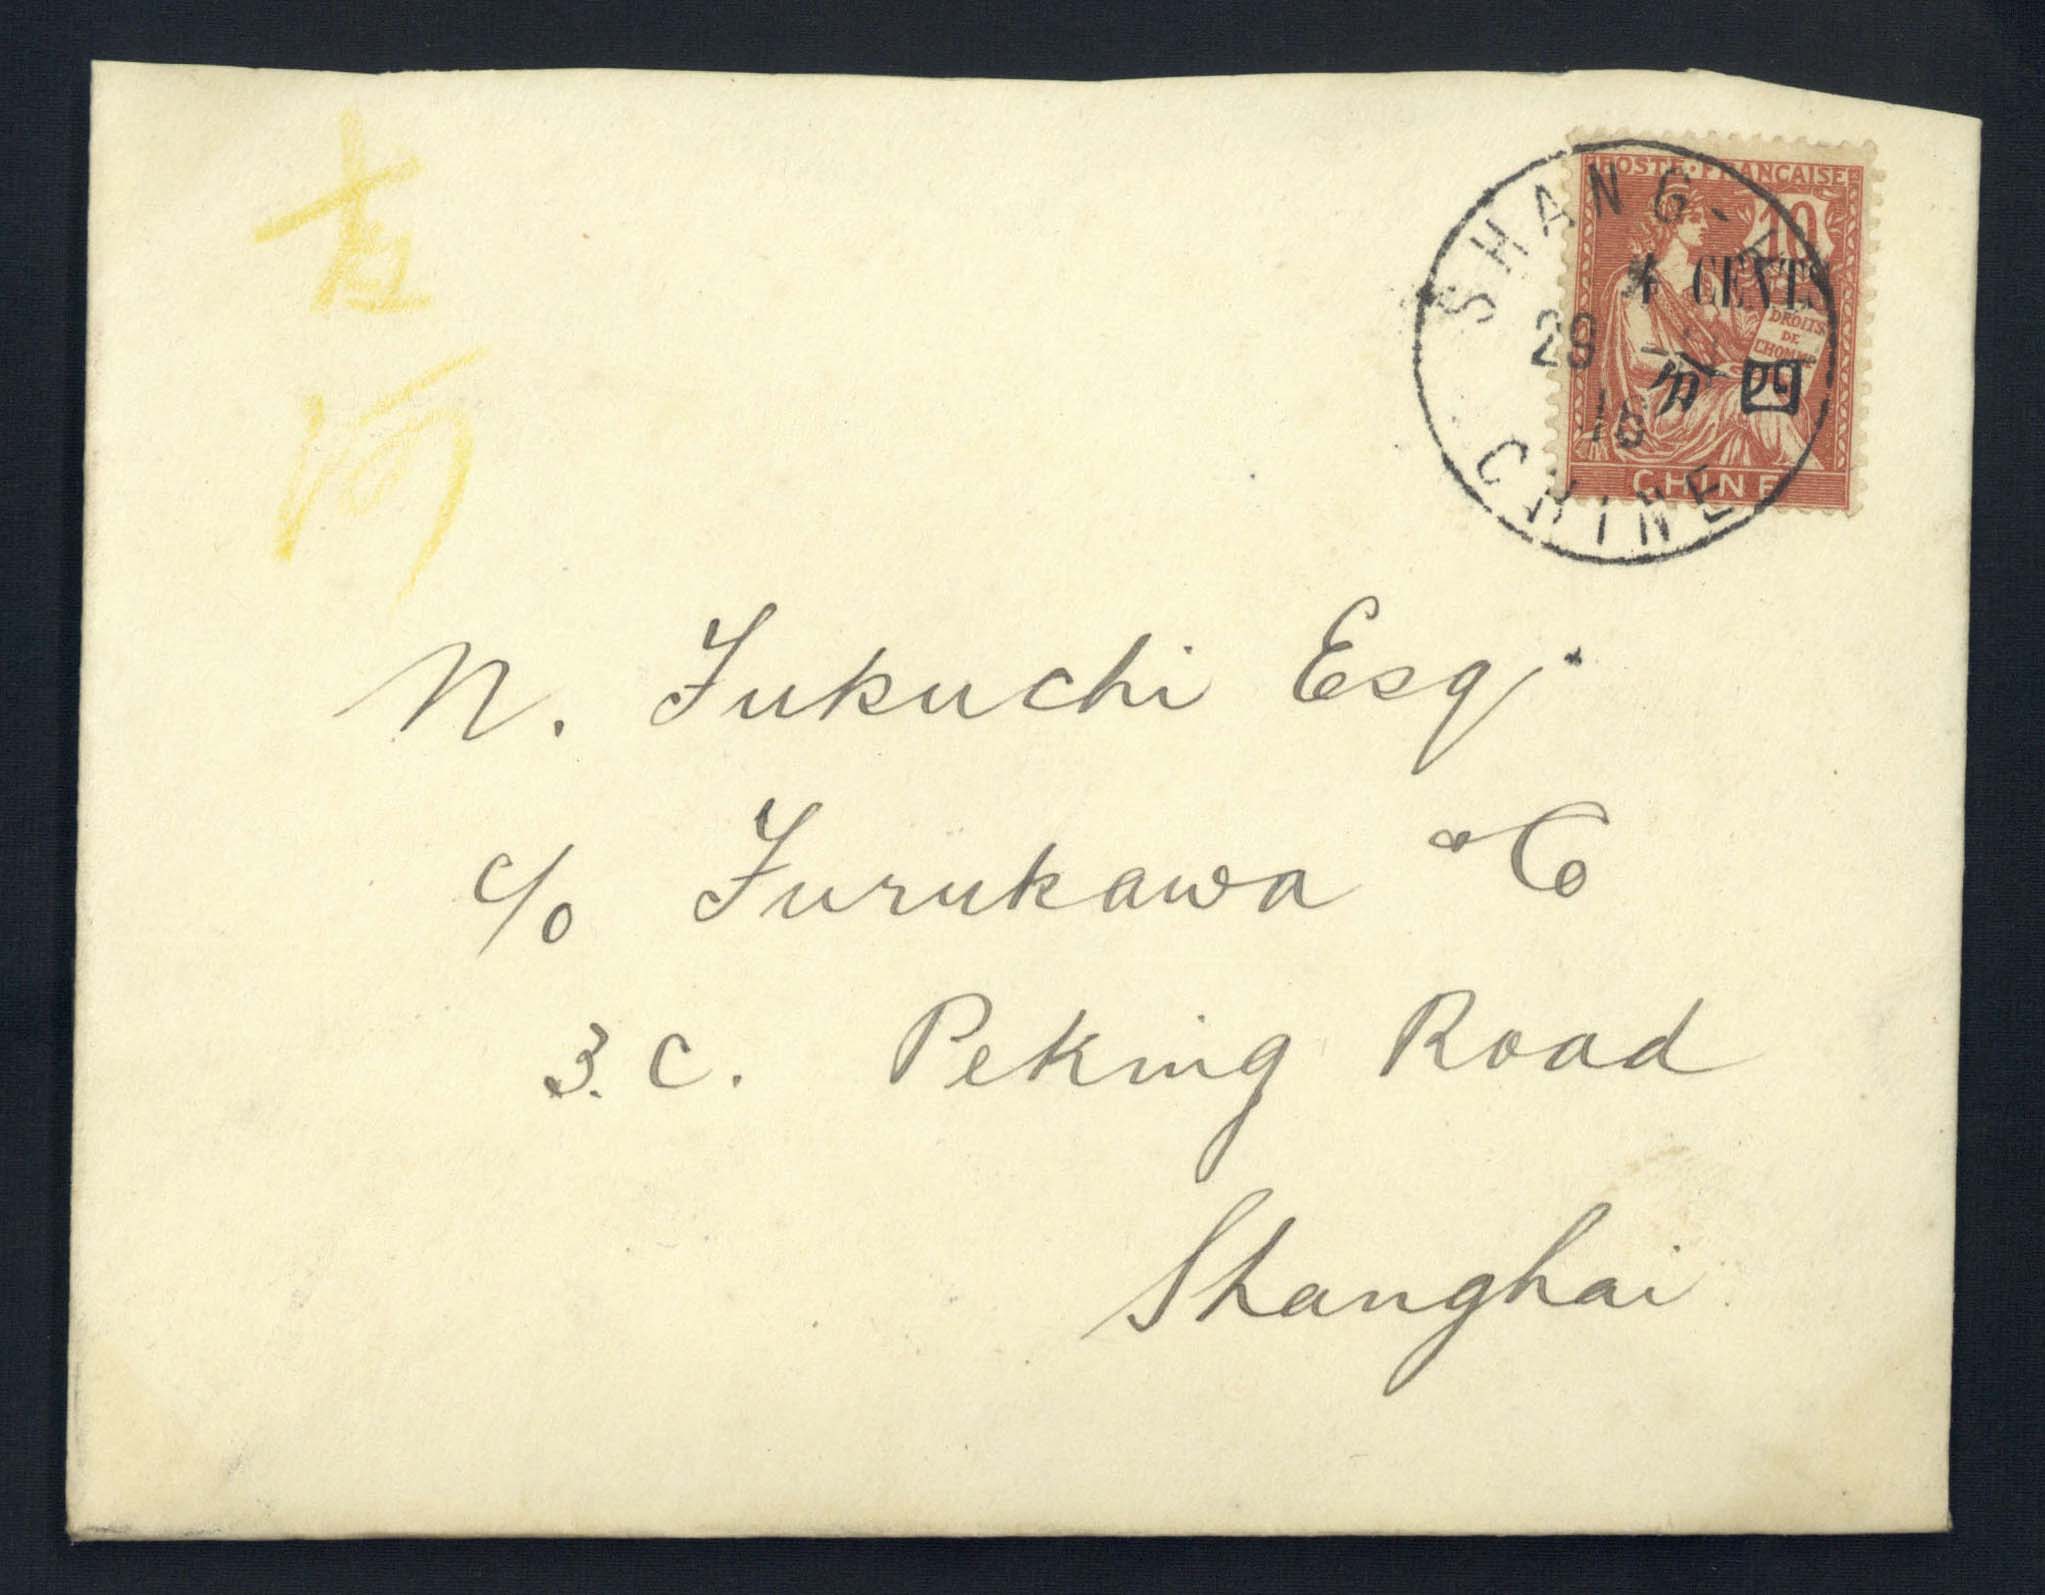 古
河
POSTE FRANÇAISE
10
4 CENTS
分四
DROITS
DE
L'HOMME
CHINE
SHANG-
29
16
CHINE
N. Fukuchi Esq.
c/o Furukawa & Co
3.C. Peking Road
Shanghai